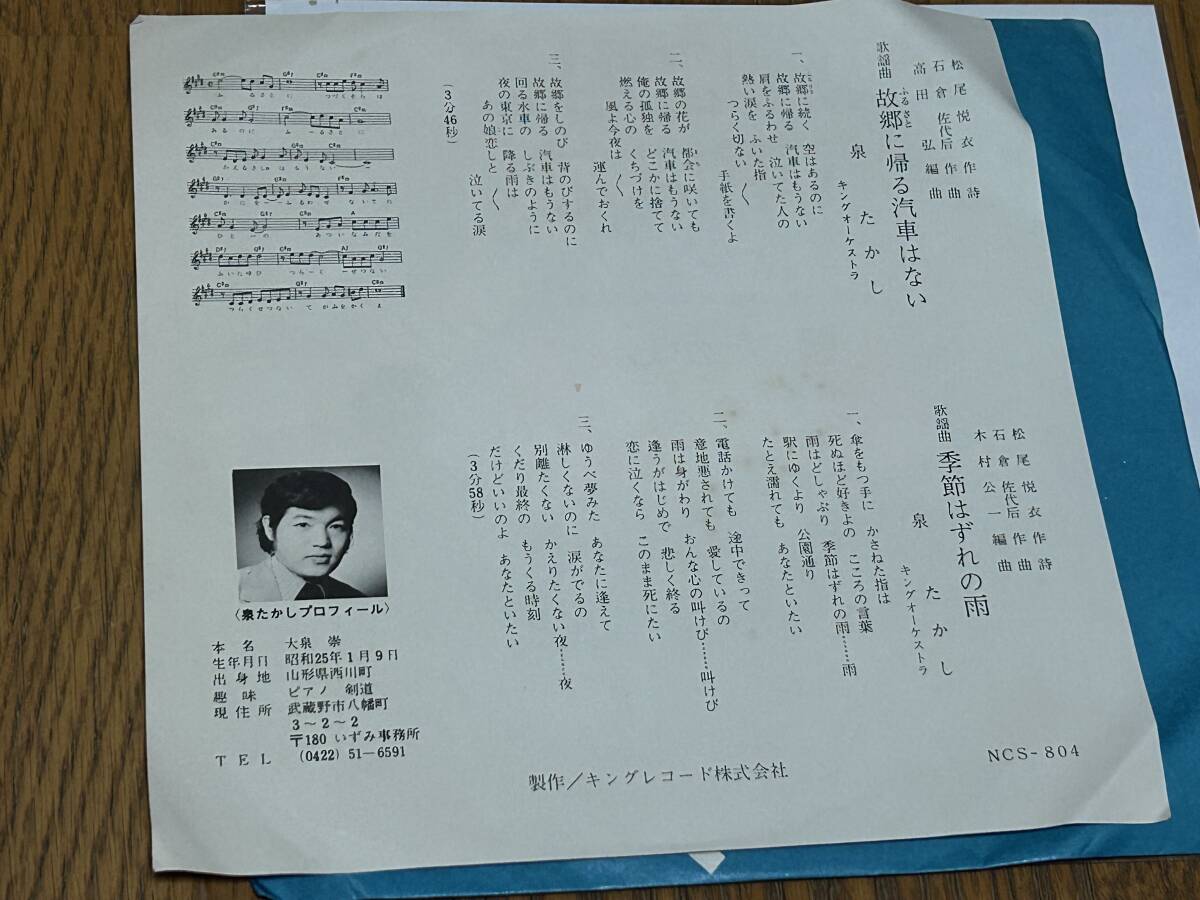 歌謡曲 故郷に帰る汽車はない
ふるさと
松尾悦衣 作詩
石倉佐代后 作曲
高田弘 編曲
泉たかし
キングオーケストラ
一、故郷に続く 空はあるのに
故郷に帰る 汽車はもうない
肩をふるわせ 泣いてた人の
熱い涙を ふいた指
つらく切ない 〱 手紙を書くよ
二、故郷の花が 都会に咲いても
故郷に帰る 汽車はもうない
俺の孤独を どこかに捨てて
燃える心の くちづけを
風よ今夜は 〱 運んでおくれ
三、故郷をしのび 背のびするのに
故郷に帰る 汽車はもうない
回る水車の しぶきのように
夜の東京に 降る雨は
あの娘恋しと 〱 泣いてる涙
(3分46秒)
歌謡曲 季節はずれの雨
松尾悦衣 作詩
石倉佐代后 作曲
木村公一 編曲
泉たかし
キングオーケストラ
一、傘をもつ手に かさねた指は
死ぬほど好きよの こころの言葉
雨はどしゃぶり 季節はずれの雨……雨
駅にゆくより 公園通り
たとえ濡れても あなたといたい
二、電話かけても 途中できって
意地悪されても 愛しているの
雨は身がわり おんな心の叫けび……叫けび
逢うがはじめで 悲しく終る
恋に泣くなら このまま死にたい
三、ゆうべ夢みた あなたに逢えて
淋しくないのに 涙がでるの
別離たくない かえりたくない夜……夜
くだり最終の もうくる時刻
だけどいいのよ あなたといたい
(3分58秒)
〈泉たかしプロフィール〉
本名 大泉 崇
生年月日 昭和25年1月9日
出身地 山形県西川町
趣味 ピアノ 剣道
現住所 武蔵野市八幡町
3〜2〜2
〒180 いずみ事務所
TEL (0422) 51−6591
製作/キングレコード株式会社
NCS-804